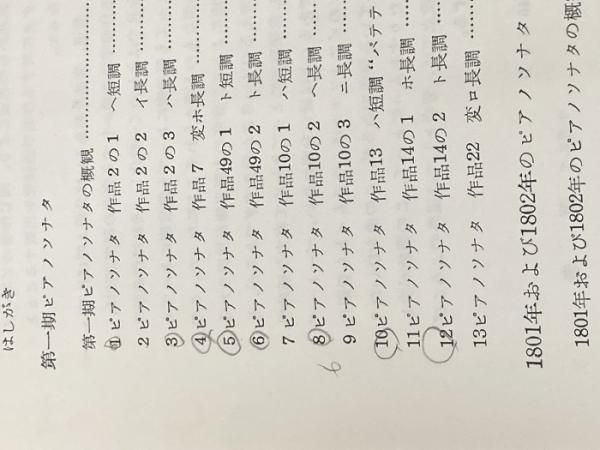 はしがき
第一期ピアノソナタ
第一期ピアノソナタの概観………………
1 ピアノソナタ 作品2の1 ヘ短調……
2 ピアノソナタ 作品2の2 イ長調……
3 ピアノソナタ 作品2の3 ハ長調……
4 ピアノソナタ 作品7 変ホ長調……
5 ピアノソナタ 作品49の1 ト短調……
6 ピアノソナタ 作品49の2 ト長調……
7 ピアノソナタ 作品10の1 ハ短調……
8 ピアノソナタ 作品10の2 ヘ長調……
6
9 ピアノソナタ 作品10の3 ニ長調……
10 ピアノソナタ 作品13 ハ短調“パテテ
11 ピアノソナタ 作品14の1 ホ長調……
12 ピアノソナタ 作品14の2 ト長調……
13 ピアノソナタ 作品22 変ロ長調……
1801年および1802年のピアノソナタ
1801年および1802年のピアノソナタの概